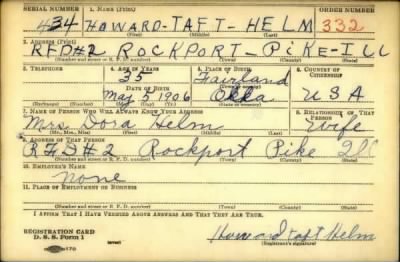 SERIAL NUMBER 1. NAME (Print) ORDER NUMBER
434 HOWARD - TAFT - HELM 332
(First) (Middle) (Last)
2. ADDRESS (Print)
RFD#2 ROCKPORT - PIKE - ILL
(Number and street or R. F. D. number) (Town) (County) (State)
3. TELEPHONE 4. AGE IN YEARS 5. PLACE OF BIRTH 6. COUNTRY OF CITIZENSHIP
35 Fairland
DATE OF BIRTH (Town or county)
May 5 1906 Okla U S A
(Exchange) (Number) (Mo.) (Day) (Yr.) (State or country)
7. NAME OF PERSON WHO WILL ALWAYS KNOW YOUR ADDRESS 8. RELATIONSHIP OF THAT PERSON
Mrs. Dora Helm Wife
(Mr., Mrs., Miss) (First) (Middle) (Last)
9. ADDRESS OF THAT PERSON
R F D #2 Rockport Pike Ill
(Number and street or R. F. D. number) (Town) (County) (State)
10. EMPLOYER'S NAME
None
11. PLACE OF EMPLOYMENT OR BUSINESS
(Number and street or R. F. D. number) (Town) (County) (State)
I AFFIRM THAT I HAVE VERIFIED ABOVE ANSWERS AND THAT THEY ARE TRUE.
REGISTRATION CARD
D. S. S. Form 1 (over) Howard taft Helm
(Registrant's signature)